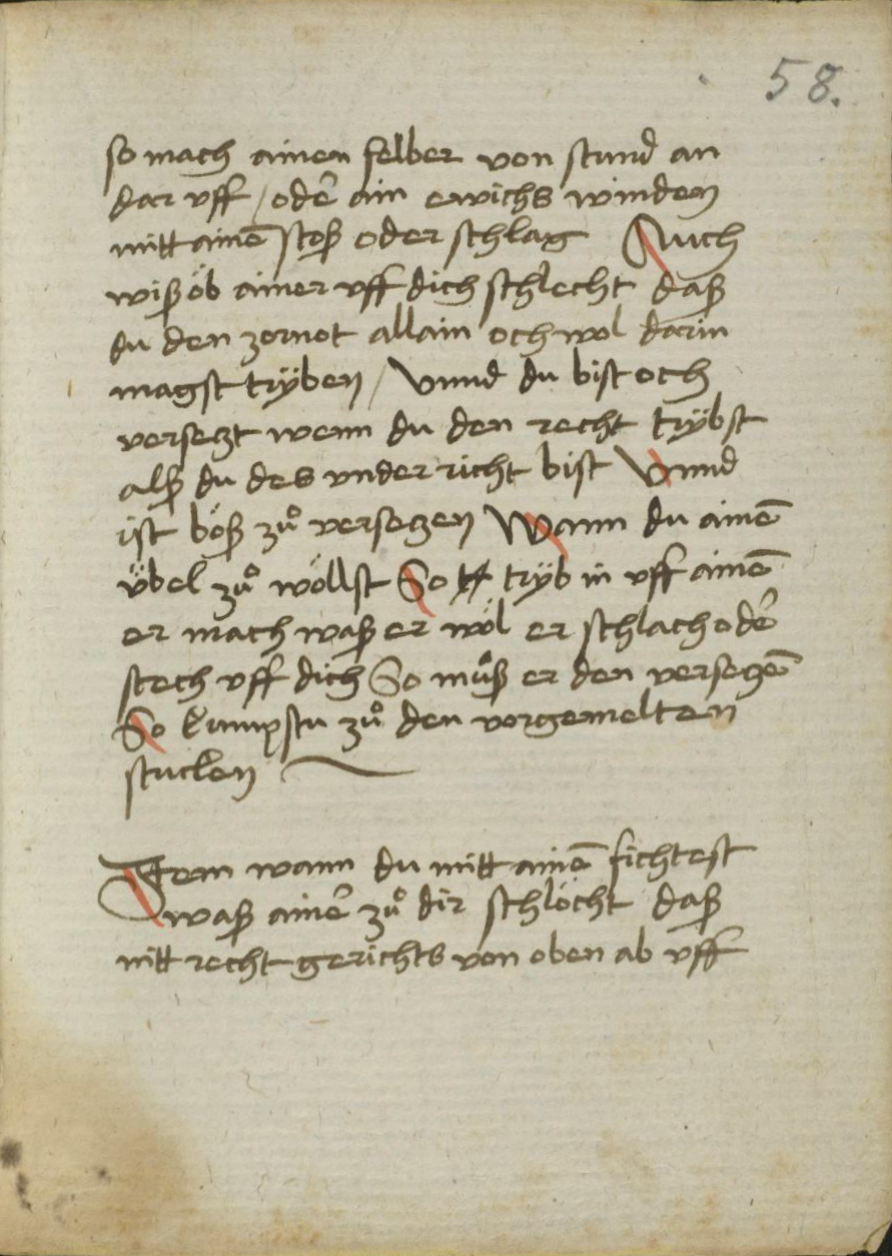 58.
so mach ainen felber von stund an
dar vff / oder̄ ain ewichs winden
mitt ainē stoß oder schlag Auch
wiß ob ainer vff dich schlecht daß
du den zornot allain och wol darin
magst trÿben / Vnnd du bist och
versezt wenn du den recht trÿbst
alß du des vnder richt bist Vnnd
ist böß zů versezen Wann du ainē
übel zů wöllst So trÿb in vff ainē
er mach waß er wöl er schlach odē
stech vff dich So můß er den versezē
So kumpstu zů den vorgemelten
stucken
Item wann du mitt ainē fichtest
waß ainē zů dir schlöcht daß
nitt recht gerichts von oben ab vff